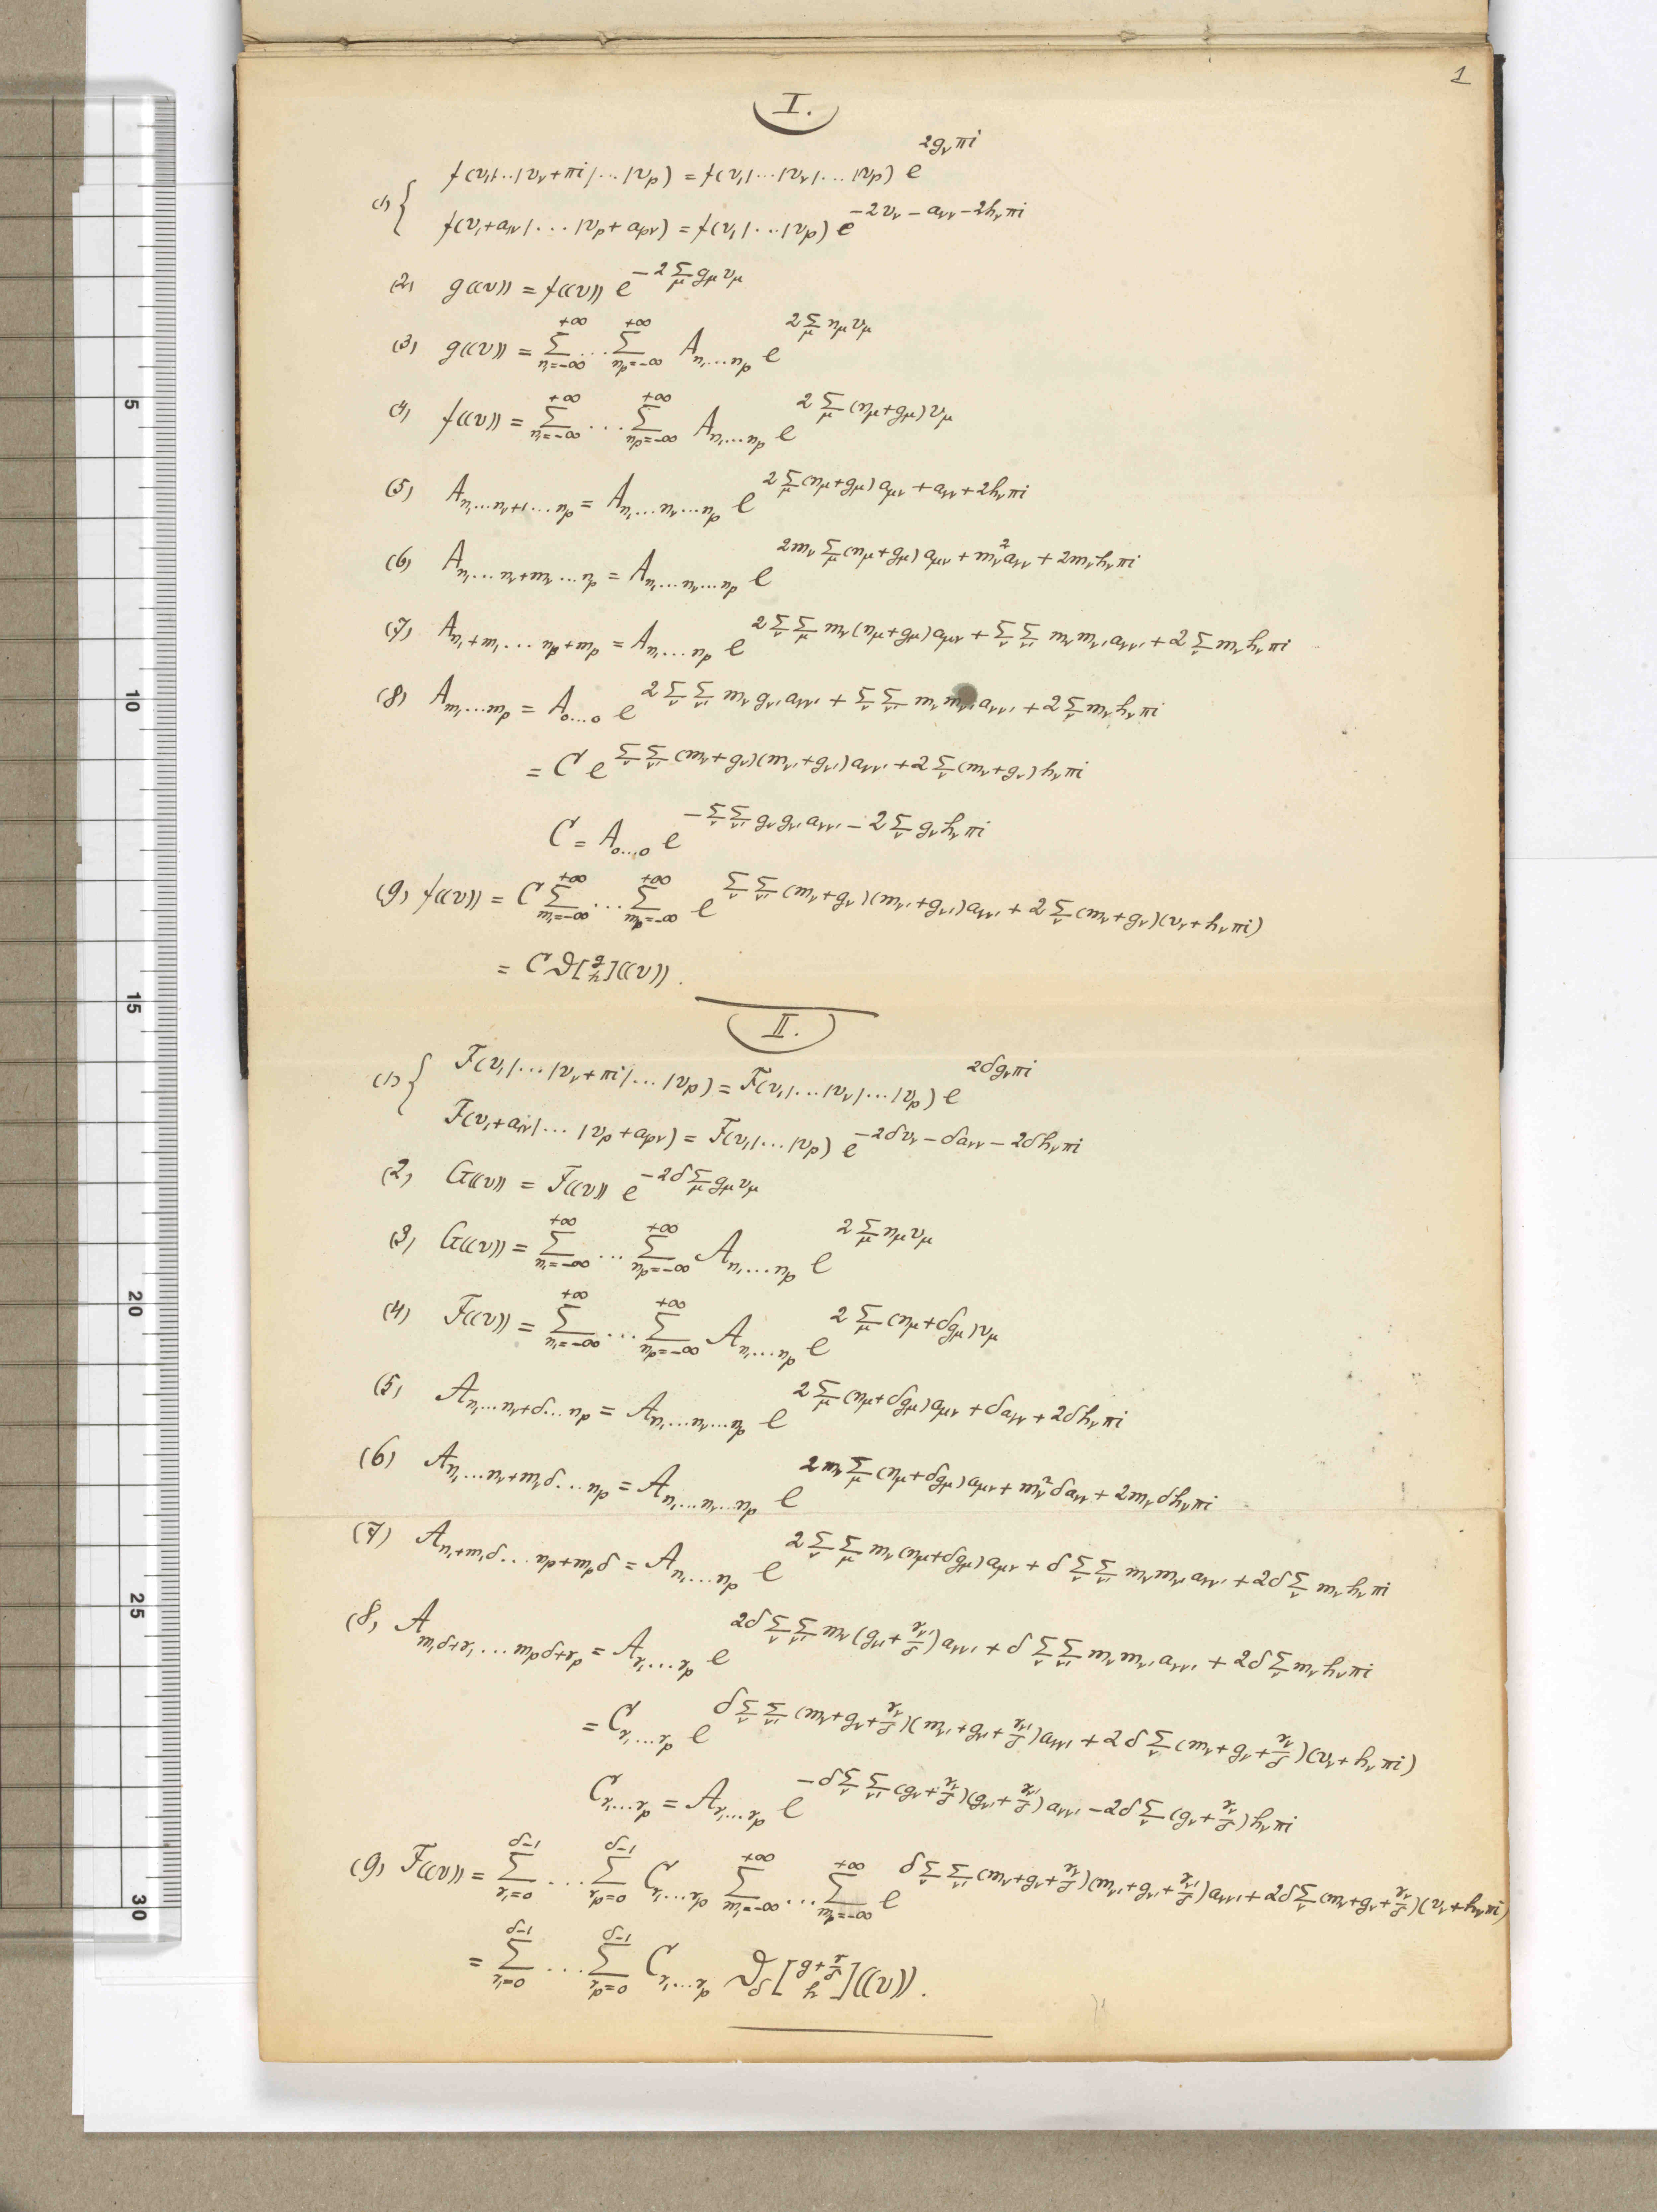 1
I.
(1) { f(v₁|...|v_ν+πi|...|v_p) = f(v₁|...|v_ν|...|v_p) e^{2g_νπi}
f(v₁+a_{1ν}|...|v_p+a_{pν}) = f(v₁|...|v_p) e^{-2v_ν - a_{νν} - 2h_νπi}
(2) g((v)) = f((v)) e^{-2 Σ_μ g_μ v_μ}
(3) g((v)) = Σ_{n₁=-∞}^{+∞} ... Σ_{n_p=-∞}^{+∞} A_{n₁...n_p} e^{2 Σ_μ n_μ v_μ}
(4) f((v)) = Σ_{n₁=-∞}^{+∞} ... Σ_{n_p=-∞}^{+∞} A_{n₁...n_p} e^{2 Σ_μ (n_μ+g_μ) v_μ}
(5) A_{n₁...n_ν+1...n_p} = A_{n₁...n_ν...n_p} e^{2 Σ_μ (n_μ+g_μ) a_{μν} + a_{νν} + 2h_νπi}
(6) A_{n₁...n_ν+m_ν...n_p} = A_{n₁...n_ν...n_p} e^{2m_ν Σ_μ (n_μ+g_μ) a_{μν} + m_ν² a_{νν} + 2m_νh_νπi}
(7) A_{n₁+m₁...n_p+m_p} = A_{n₁...n_p} e^{2 Σ_ν Σ_μ m_ν (n_μ+g_μ) a_{μν} + Σ_ν Σ_ν' m_ν m_ν' a_{νν'} + 2 Σ_ν m_νh_νπi}
(8) A_{m₁...m_p} = A_{0...0} e^{2 Σ_ν Σ_ν' m_ν g_ν' a_{νν'} + Σ_ν Σ_ν' m_ν m_ν' a_{νν'} + 2 Σ_ν m_νh_νπi}
= C e^{Σ_ν Σ_ν' (m_ν+g_ν)(m_ν'+g_ν') a_{νν'} + 2 Σ_ν (m_ν+g_ν) h_νπi}
C = A_{0...0} e^{-Σ_ν Σ_ν' g_ν g_ν' a_{νν'} - 2 Σ_ν g_νh_νπi}
(9) f((v)) = C Σ_{m₁=-∞}^{+∞} ... Σ_{m_p=-∞}^{+∞} e^{Σ_ν Σ_ν' (m_ν+g_ν)(m_ν'+g_ν') a_{νν'} + 2 Σ_ν (m_ν+g_ν)(v_ν+h_νπi)}
= C ϑ[g h]((v)).
II.
(1) { F(v₁|...|v_ν+πi|...|v_p) = F(v₁|...|v_ν|...|v_p) e^{2δg_νπi}
F(v₁+a_{1ν}|...|v_p+a_{pν}) = F(v₁|...|v_p) e^{-2δv_ν - δa_{νν} - 2δh_νπi}
(2) G((v)) = F((v)) e^{-2δ Σ_μ g_μ v_μ}
(3) G((v)) = Σ_{n₁=-∞}^{+∞} ... Σ_{n_p=-∞}^{+∞} A_{n₁...n_p} e^{2 Σ_μ n_μ v_μ}
(4) F((v)) = Σ_{n₁=-∞}^{+∞} ... Σ_{n_p=-∞}^{+∞} A_{n₁...n_p} e^{2 Σ_μ (n_μ+δg_μ) v_μ}
(5) A_{n₁...n_ν+δ...n_p} = A_{n₁...n_ν...n_p} e^{2 Σ_μ (n_μ+δg_μ) a_{μν} + δa_{νν} + 2δh_νπi}
(6) A_{n₁...n_ν+m_νδ...n_p} = A_{n₁...n_ν...n_p} e^{2m_ν Σ_μ (n_μ+δg_μ) a_{μν} + m_ν² δa_{νν} + 2m_νδh_νπi}
(7) A_{n₁+m₁δ...n_p+m_pδ} = A_{n₁...n_p} e^{2 Σ_ν Σ_μ m_ν (n_μ+δg_μ) a_{μν} + δ Σ_ν Σ_ν' m_ν m_ν' a_{νν'} + 2δ Σ_ν m_νh_νπi}
(8) A_{m₁δ+r₁...m_pδ+r_p} = A_{r₁...r_p} e^{2δ Σ_ν Σ_ν' m_ν (g_μ + r_ν'/δ) a_{νν'} + δ Σ_ν Σ_ν' m_ν m_ν' a_{νν'} + 2δ Σ_ν m_νh_νπi}
= C_{r₁...r_p} e^{δ Σ_ν Σ_ν' (m_ν+g_ν+r_ν/δ)(m_ν'+g_ν'+r_ν'/δ) a_{νν'} + 2δ Σ_ν (m_ν+g_ν+r_ν/δ)(v_ν+h_νπi)}
C_{r₁...r_p} = A_{r₁...r_p} e^{-δ Σ_ν Σ_ν' (g_ν+r_ν/δ)(g_ν'+r_ν'/δ) a_{νν'} - 2δ Σ_ν (g_ν+r_ν/δ) h_νπi}
(9) F((v)) = Σ_{r₁=0}^{δ-1} ... Σ_{r_p=0}^{δ-1} C_{r₁...r_p} Σ_{m₁=-∞}^{+∞} ... Σ_{m_p=-∞}^{+∞} e^{δ Σ_ν Σ_ν' (m_ν+g_ν+r_ν/δ)(m_ν'+g_ν'+r_ν'/δ) a_{νν'} + 2δ Σ_ν (m_ν+g_ν+r_ν/δ)(v_ν+h_νπi)}
= Σ_{r₁=0}^{δ-1} ... Σ_{r_p=0}^{δ-1} C_{r₁...r_p} ϑ_δ[g+r/δ h]((v)).
5
10
15
20
25
30